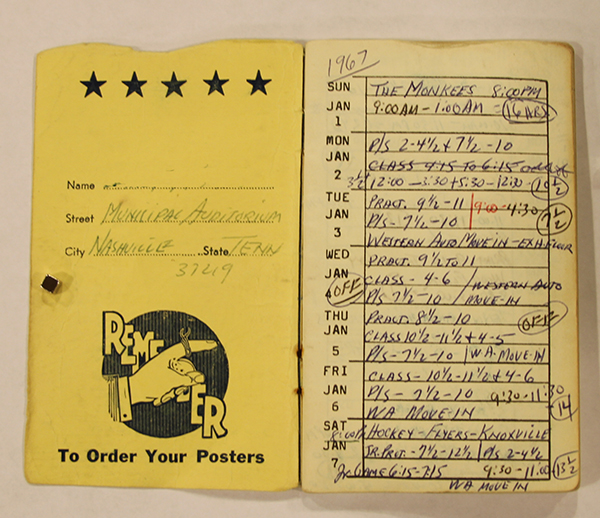 Name
Street MUNICIPAL AUDITORIUM
City NASHVILLE State TENN
37219
REMEMBER
To Order Your Posters
1967
SUN JAN 1
THE MONKEES 8:00PM
9:00AM - 1:00AM = 16 HRS
MON JAN 2
P/S 2-4½ & 7½-10
CLASS 4:15 TO 6:15
3½ 12:00 - 3:30 + 5:30 - 12:30 - 10½
TUE JAN 3
PRACT. 9½-11 9:00-4:30
P/S - 7½-10 7½
WESTERN AUTO MOVE IN - EXH. FLOOR
WED JAN 4
PRACT. 9½ TO 11
OFF CLASS - 4-6 / WESTERN AUTO
P/S 7½-10 MOVE-IN
THU JAN 5
PRACT. 8½-10 OFF
CLASS 10½-11½ & 4-5
P/S - 7½-10 | W.A. MOVE-IN
FRI JAN 6
CLASS - 10½-11½ & 4-6
P/S - 7½-10 9:30-11:30
W/A MOVE-IN 14
SAT JAN 7
8:00PM HOCKEY - FLYERS - KNOXVILLE
JR. PRCT. - 7½-12½ | P/S 2-4½
Jr. GAME 6:15-7:15 9:30-11:00 13½
W/A MOVE IN